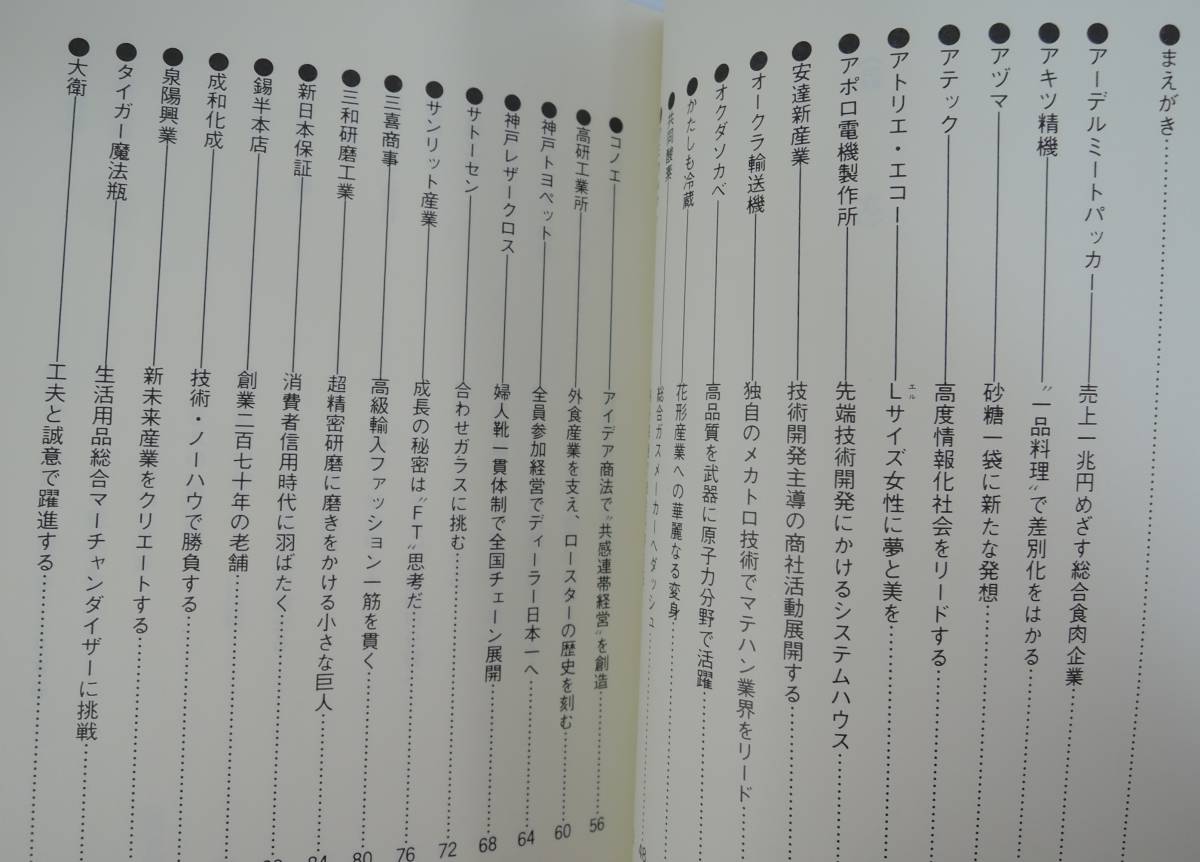 ●まえがき……………………………
●アーデルミートパッカー───売上一兆円めざす総合食肉企業…………
●アキツ精機───〝一品料理〟で差別化をはかる…………
●アヅマ───砂糖一袋に新たな発想…………
●アテック───高度情報化社会をリードする…………
●アトリエ・エコー───Lエルサイズ女性に夢と美を…………
●アポロ電機製作所───先端技術開発にかけるシステムハウス…………
●安達新産業───技術開発主導の商社活動展開する…………
●オークラ輸送機───独自のメカトロ技術でマテハン業界をリード…………
●オクダソカベ───高品質を武器に原子力分野で活躍…………
●かたしも冷蔵───花形産業への華麗なる変身…………
●共同酸業───総合ガスメーカーへダッシュ…………
●コノエ───アイデア商法で〝共感連帯経営〟を創造…………56
●高研工業所───外食産業を支え、ロースターの歴史を刻む…………60
●神戸トヨペット───全員参加経営でディーラー日本一へ…………64
●神戸レザークロス───婦人靴一貫体制で全国チェーン展開…………68
●サトーセン───合わせガラスに挑む…………72
●サンリット産業───成長の秘密は〝FT〟思考だ…………76
●三喜商事───高級輸入ファッション一筋を貫く…………80
●三和研磨工業───超精密研磨に磨きをかける小さな巨人…………84
●新日本保証───消費者信用時代に羽ばたく…………
●錫半本店───創業二百七十年の老舗…………
●成和化成───技術・ノーハウで勝負する…………
●泉陽興業───新未来産業をクリエートする…………
●タイガー魔法瓶───生活用品総合マーチャンダイザーに挑戦…………
●大衛───工夫と誠意で躍進する…………